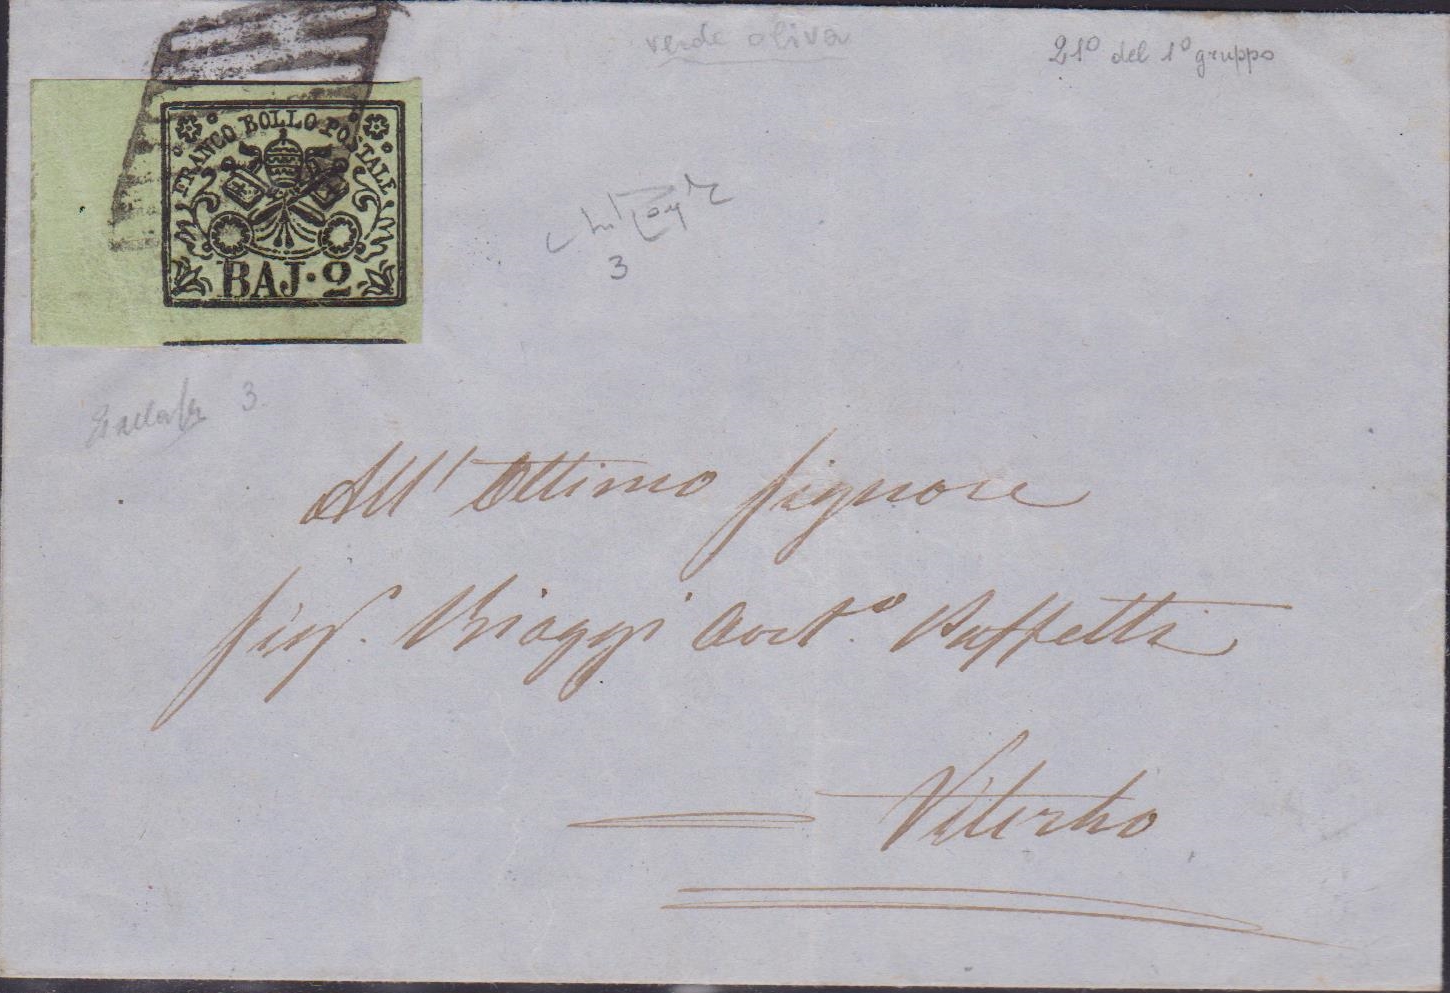 verde oliva
21º del 1º gruppo
FRANCO BOLLO POSTALE
BAJ·2
3
3
All'Ottimo Signore
Sig. Biaggi Avv.º Buffetti
Viterbo